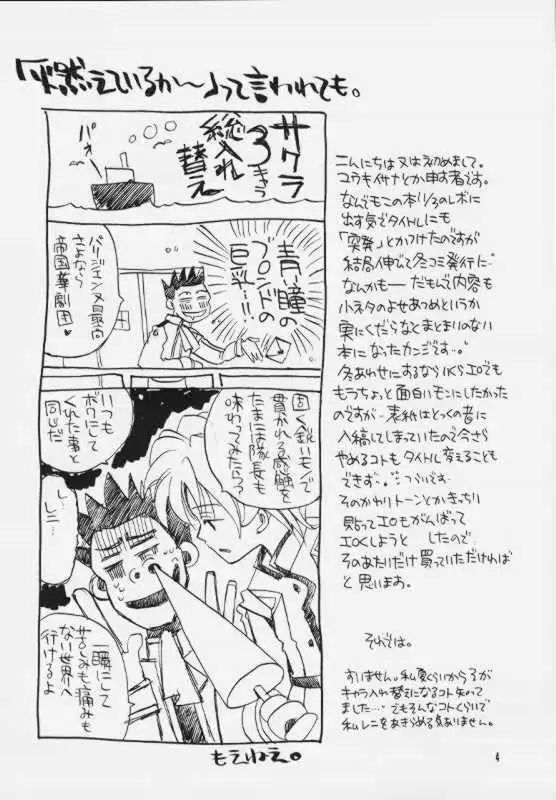 「燃えているか〜」って言われても。
サクラ
3キャラ
総入れ
替え
パオー
青い瞳の
ブロンドの
巨乳…!!
パリジェンヌ最高
さよなら
帝国華劇団
固く鋭いモノで
貫かれる感触を
たまには隊長も
味わってみたら?
いつも
ボクにして
くれた事と
同じだ
し…
レニ…
一瞬にして
苦しみも痛みも
ない世界へ
行けるよ
もえねえ。
こんにちは又は初めまして。
コウキイサナとか申す者です。
なんでもこの本1/3のレボに
出す気でタイトルにも
「突発」とかつけたのですが
結局伸びて冬コミ発行に゛
なんかもーだもんで内容も
小ネタのよせあつめというか
実にくだらなくまとまりのない
本になったカンジです…。
冬あわせにするならIKらエロでも
もうちょっと面白いモンにしたかった
のですが…表紙はとっくの昔に
入稿してしまっていたので今さら
やめるコトもタイトル変えることも
できず…。つらいです。
そのかわりトーンとかきっちり
貼ってエロもがんばって
エロくしようと したので
そのあたいだけ買っていただければ
と思います。
それでは。
すいません。私夏くらいから3が
キャラ入れ替えになるコト知って
ました…でもそんなコトくらいで
私レニをあきらめる気ありません。
4